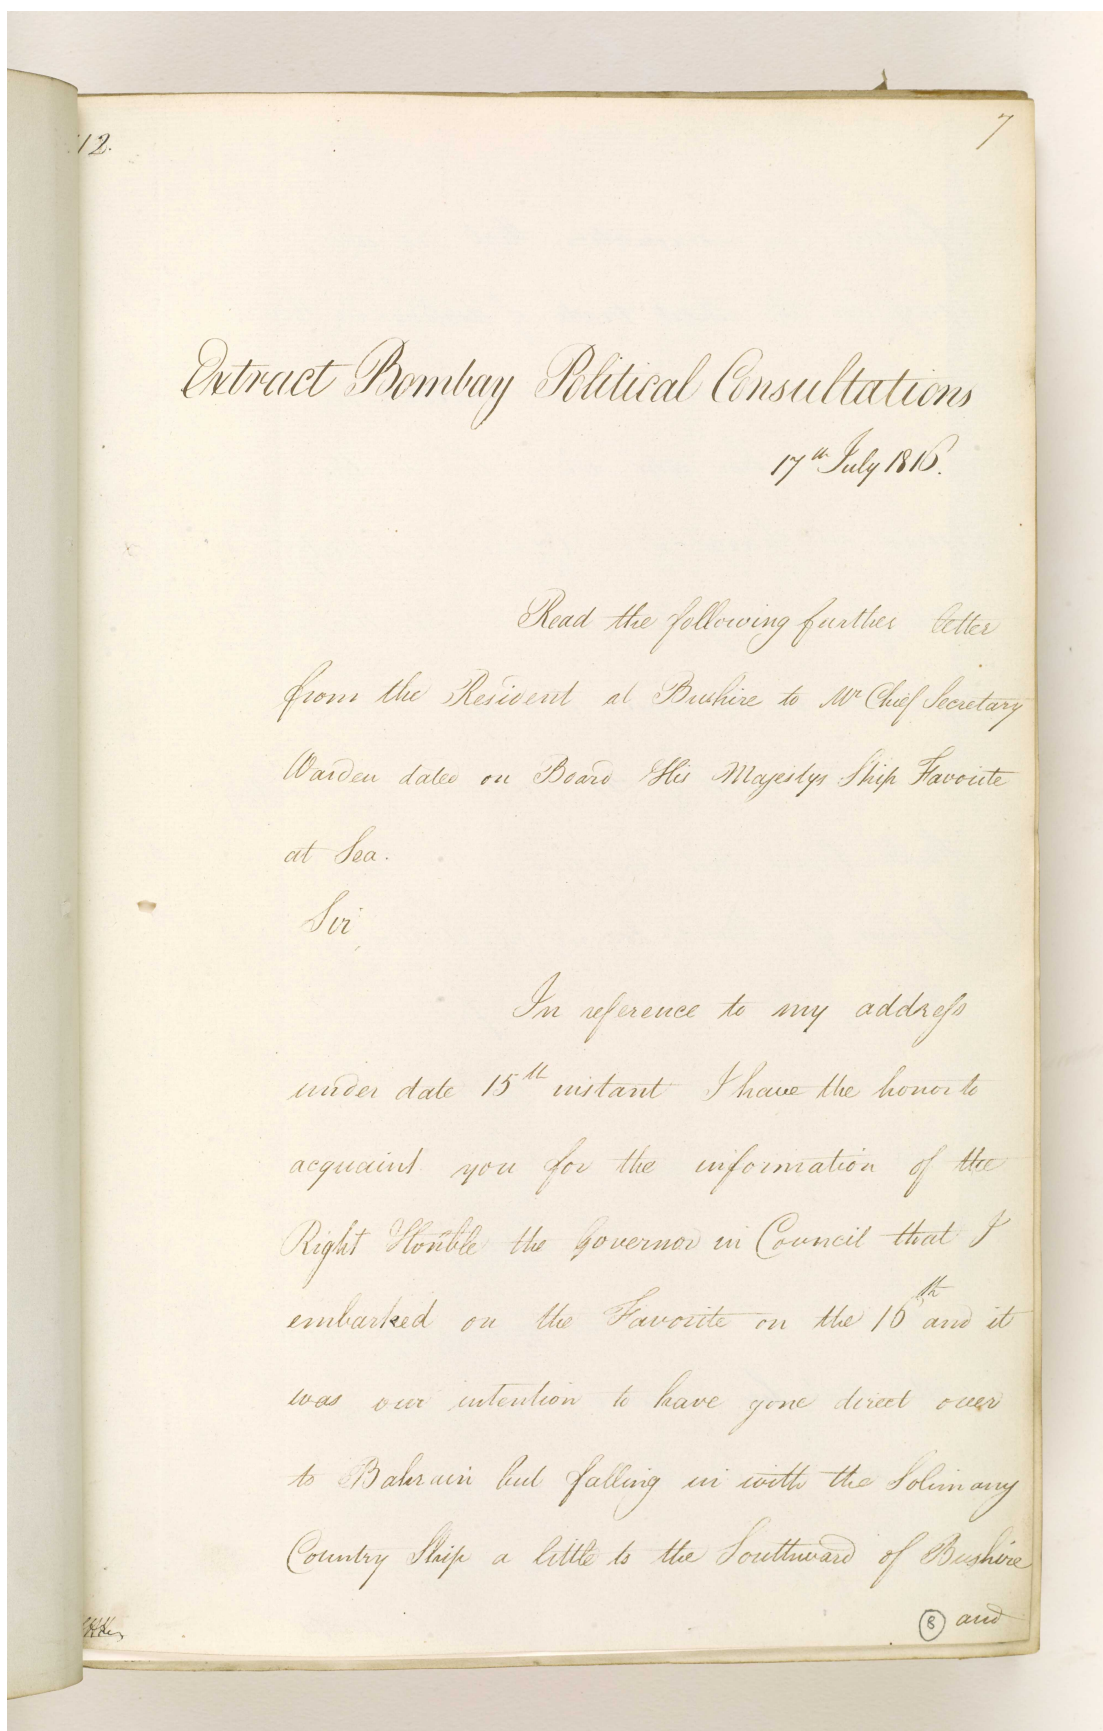 12.
7
Extract Bombay Political Consultations
17th July 1816.
Read the following further letter
from the Resident at Bushire to Mr Chief Secretary
Warden dated on Board His Majestys Ship Favorite
at Sea.
Sir,
In reference to my address
under date 15th instant I have the honor to
acquaint you for the information of the
Right Honble the Governor in Council that I
embarked on the Favorite on the 16th and it
was our intention to have gone direct over
to Bahrain but falling in with the Solimany
Country Ship a little to the Southward of Bushire
8 and